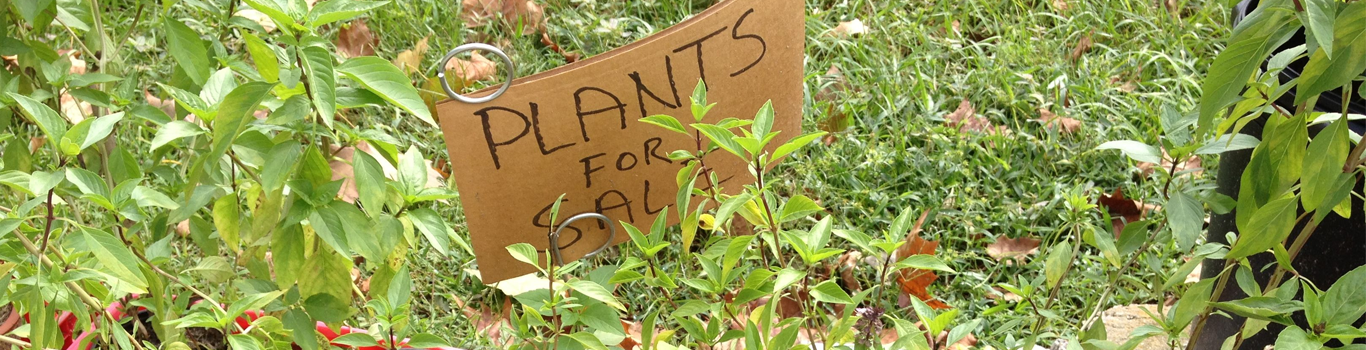 PLANTS
FOR
SALE